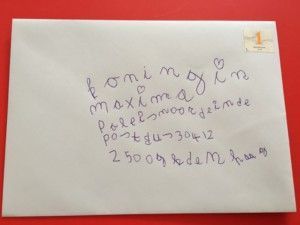 koningin
maxima
paleisnoordeinde
postbus30412
2500gkdeNhaag
1